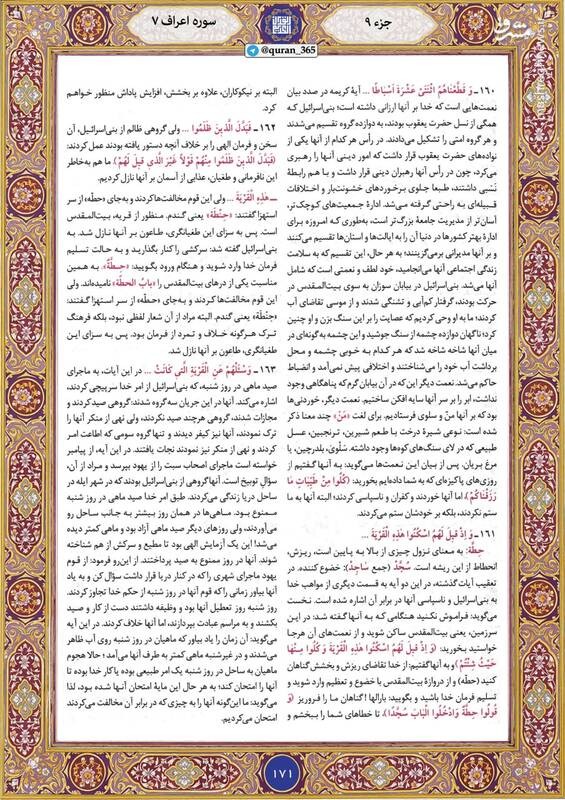 جزء ۹
سوره اعراف ۷
مشرق
@quran_365
۱۶۰ـ وَ قَطَّعْناهُمُ اثْنَتَیْ عَشْرَةَ أَسْباطًا ... آیهٔ کریمه در صدد بیان
نعمت‌هایی است که خدا بر آنها ارزانی داشته است؛ بنی‌اسرائیل که
همگی از نسل حضرت یعقوب بودند، به دوازده گروه تقسیم می‌شدند
و هر گروه امتی را تشکیل می‌دادند. در رأس هر کدام از آنها یکی از
نواده‌های حضرت یعقوب قرار داشت که امور دینی آنها را رهبری
می‌کرد، چون در رأس آنها رهبران دینی قرار داشت و با هم رابطهٔ
نَسَبی داشتند، طبعا جلوی برخوردهای خشونت‌بار و اختلافات
قبیله‌ای به راحتی گرفته می‌شد. ادارهٔ جمعیت‌های کوچک‌تر،
آسان‌تر از مدیریت جامعهٔ بزرگ‌تر است، به‌طوری که امروزه برای
ادارهٔ بهتر کشورها در دنیا آن را به ایالت‌ها و استان‌ها تقسیم می‌کنند
و بر آنها مدیرانی برمی‌گزینند؛ به هر حال، این تقسیم که به سلامت
زندگی اجتماعی آنها می‌انجامید، خود لطف و نعمتی است که شامل
آنها می‌شد. بنی‌اسرائیل در بیابان سوزان به سوی بیت‌المقدس در
حرکت بودند، گرفتار کم‌آبی و تشنگی شدند و از موسی تقاضای آب
کردند؛ ما به او وحی کردیم که عصایت را بر این سنگ بزن و او چنین
کرد؛ ناگهان دوازده چشمه از سنگ جوشید و این چشمه به گونه‌ای در
میان آنها شاخه شاخه شد که هر کدام به خوبی چشمه و محل
برداشت آب خود را می‌شناختند و اختلافی پیش نمی‌آمد و انضباط
حاکم می‌شد. نعمت دیگر این که در آن بیابان گرم که پناهگاهی وجود
نداشت، ابر را بر سر آنها سایه افکن ساختیم. نعمت دیگر، خوردنی‌ها
بود که بر آنها منّ و سلوی فرستادیم. برای لغت «مَنّ» چند معنا ذکر
شده است: نوعی شیرهٔ درخت با طعم شیرین، ترنجبین، عسل
طبیعی که در لای سنگ‌های کوه‌ها وجود داشته. سَلْویٰ، بلدرچین، یا
مرغ بریان. پس از بیان این نعمت‌ها می‌گوید: به آنها گفتیم از
روزی‌های پاکیزه‌ای که به شما داده‌ایم بخورید: (کُلُوا مِنْ طَیِّباتِ ما
رَزَقْناکُمْ). اما آنها خوردند و کفران و ناسپاسی کردند؛ البته آنها به ما
ستم نکردند، بلکه بر خودشان ستم می‌کردند.
۱۶۱ـ وَ إِذْ قِیلَ لَهُمُ اسْکُنُوا هٰذِهِ الْقَرْیَةَ ...
حِطَّة: به معنای نزول چیزی از بالا به پایین است، ریزش،
انحطاط از این ریشه است. سُجَّد (جمع ساجِد): خضوع کننده. در
تعقیب آیات گذشته، در این دو آیه به قسمت دیگری از مواهب خدا
به بنی‌اسرائیل و ناسپاسی آنها در برابر آن اشاره شده است. نخست
می‌گوید: فراموش نکنید هنگامی که به آنها گفته شد: در این
سرزمین، یعنی بیت‌المقدس ساکن شوید و از نعمت‌های آن هرجا
خواستید بخورید: (وَ إِذْ قِیلَ لَهُمُ اسْکُنُوا هٰذِهِ الْقَرْیَةَ وَ کُلُوا مِنْها
حَیْثُ شِئْتُمْ) و به آنها گفتیم: از خدا تقاضای ریزش و بخشش گناهان
کنید (حطّه) و از دروازهٔ بیت‌المقدس با خضوع و تعظیم وارد شوید و
تسلیم فرمان خدا باشید و بگویید: بارالها! گناهان ما را فروریز (وَ
قُولُوا حِطَّةٌ وَ ادْخُلُوا الْبابَ سُجَّدًا)، تا خطاهای شما را ببخشم و
البته بر نیکوکاران، علاوه بر بخشش، افزایش پاداش منظور خواهیم
کرد.
۱۶۲ـ فَبَدَّلَ الَّذِینَ ظَلَمُوا ... ولی گروهی ظالم از بنی‌اسرائیل، آن
سخن و فرمان الهی را بر خلاف آنچه دستور یافته بودند عمل کردند:
(فَبَدَّلَ الَّذِینَ ظَلَمُوا مِنْهُمْ قَوْلًا غَیْرَ الَّذِی قِیلَ لَهُمْ). ما هم به‌خاطر
این نافرمانی و طغیان، عذابی از آسمان بر آنها نازل کردیم.
ـ هٰذِهِ الْقَرْیَةَ ... ولی این قوم مخالفت‌ها کردند و به‌جای «حطّه» از سر
استهزا گفتند: «حِنْطَة» یعنی گندم. منظور از قریه، بیت‌المقدس
است. پس به سزای این طغیانگری، طاعون بر آنها نازل شد. به
بنی‌اسرائیل گفته شد: سرکشی را کنار بگذارید و به حالت تسلیم
فرمان خدا وارد شوید و هنگام ورود بگویید: «حِطَّة». به همین
مناسبت یکی از درهای بیت‌المقدس را «بابُ الحطّة» نامیده‌اند. ولی
این قوم مخالفت‌ها کردند و به‌جای «حطّه» از سر استهزا گفتند:
«حِنْطَة» یعنی گندم. البته مراد از آن شعار لفظی نبود، بلکه فرهنگ
ترک هرگونه خلاف و تمرد از فرمان بود. پس به سزای این
طغیانگری، طاعون بر آنها نازل شد.
۱۶۳ـ وَ سْئَلْهُمْ عَنِ الْقَرْیَةِ الَّتِی کانَتْ ... در این آیات، به ماجرای
صید ماهی در روز شنبه، که بنی‌اسرائیل از امر خدا سرپیچی کردند،
اشاره می‌کند. آنها در این جریان سه گروه شدند: گروهی صید کردند و
مجازات شدند، گروهی هرچند صید نکردند، ولی نهی از منکر آنها را
ترک نمودند، آنها نیز کیفر دیدند و تنها گروه سومی که اطاعت امر
کردند و نهی از منکر نیز نمودند نجات یافتند. در این آیه، از پیامبر
خواسته است ماجرای اصحاب سبت را از یهود بپرسد و مراد از آن،
سؤال توبیخ است. آنها گروهی از بنی‌اسرائیل بودند که در شهر ایله در
ساحل دریا زندگی می‌کردند. طبق امر خدا صید ماهی در روز شنبه
ممنوع بود. ماهی‌ها در همان روز بیشتر به جانب ساحل رو
می‌آوردند، ولی روزهای دیگر صید ماهی آزاد بود و ماهی کمتر دیده
می‌شد! این یک آزمایش الهی بود تا مطیع و سرکش از هم شناخته
شوند. آنها در روز ممنوع به صید پرداختند. از این‌رو فرمود: از قوم
یهود ماجرای شهری را که در کنار دریا قرار داشت سؤال کن و به یاد
آنها بیاور زمانی را که قوم آنها در روز شنبه از حکم خدا تجاوز کردند.
روز شنبه روز تعطیل آنها بود و وظیفه داشتند دست از کار و صید
بکشند و به مراسم عبادت بپردازند، اما آنها خلاف کردند. در این آیه
می‌گوید: آن زمان را یاد بیاور که ماهیان در روز شنبه روی آب ظاهر
می‌شدند و در غیرشنبه ماهی کمتر به طرف آنها می‌آمد؛ حالا هجوم
ماهیان به ساحل در روز شنبه یک امر طبیعی بوده یا کار خدا بوده تا
آنها را امتحان کند؛ به هر حال این مایهٔ امتحان آنها شده بود، لذا
می‌گوید: ما این‌گونه آنها را به چیزی که در برابر آن مخالفت می‌کردند
امتحان می‌کردیم.
۱۷۱